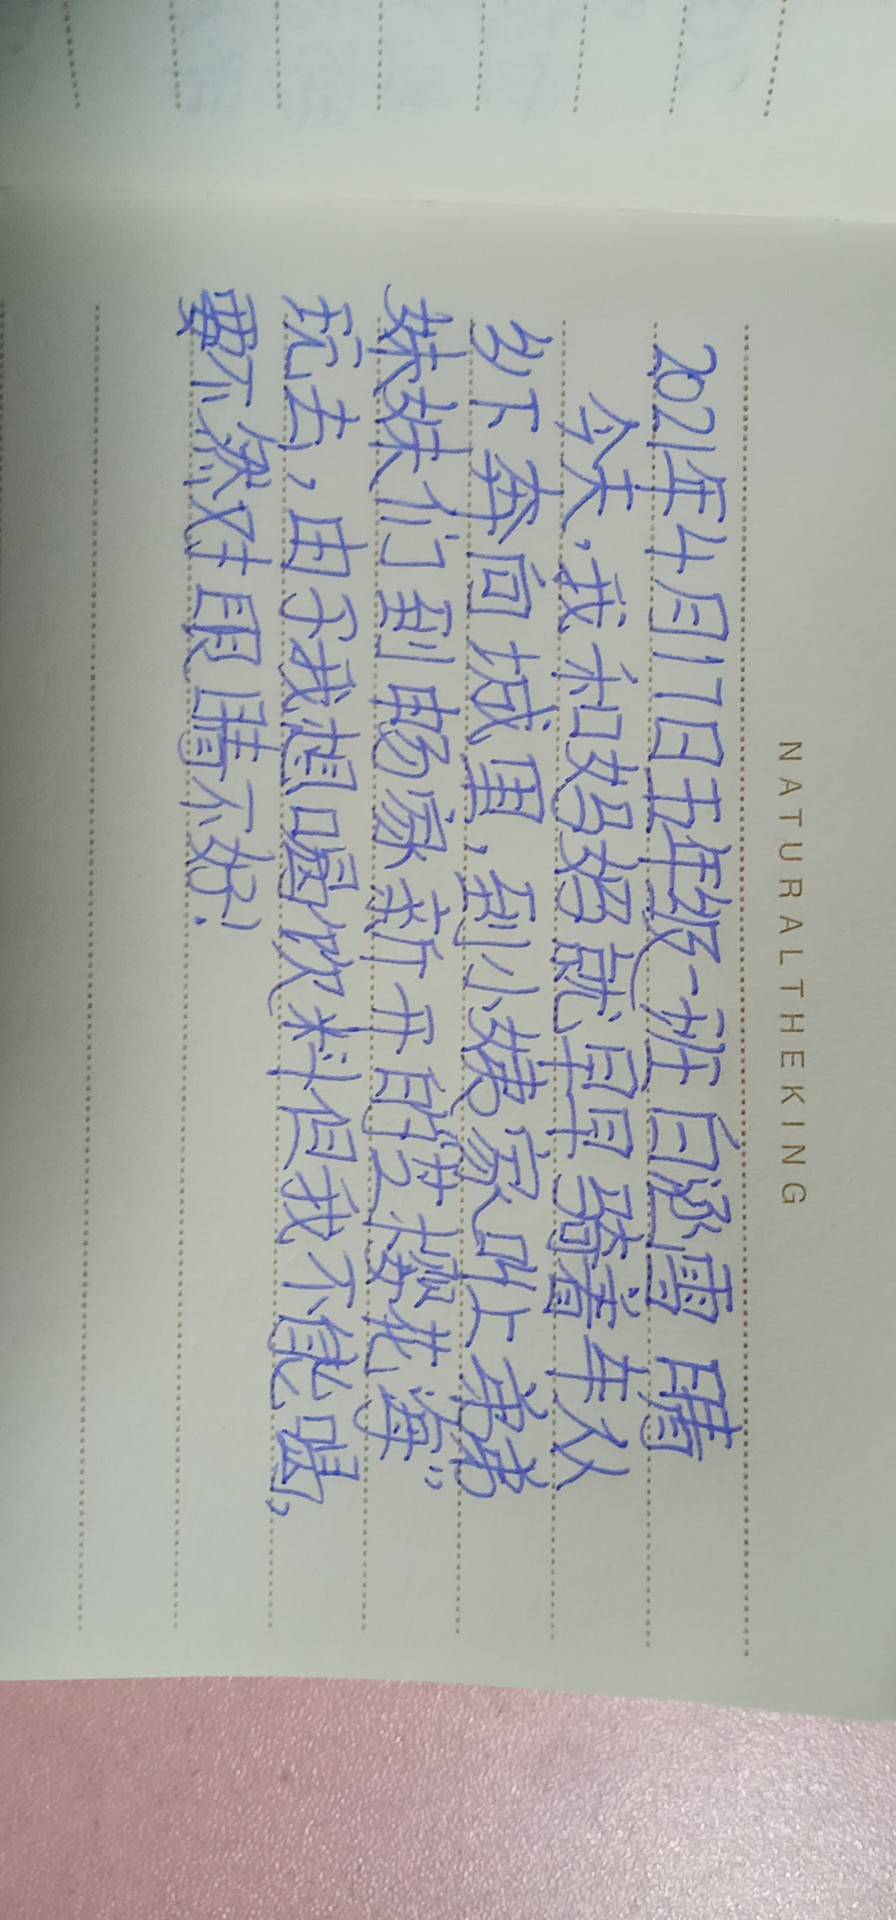 NATURALTHEKING
2021年4月17日五年级一班 白涵雪 晴
今天,我和妈妈就早早骑着车从
乡下奔向城里,到小姨家叫上弟弟
妹妹们到畅家新开的 楼花海”
玩去,由于我想喝饮料但我不能喝,
要不然对眼睛不好!